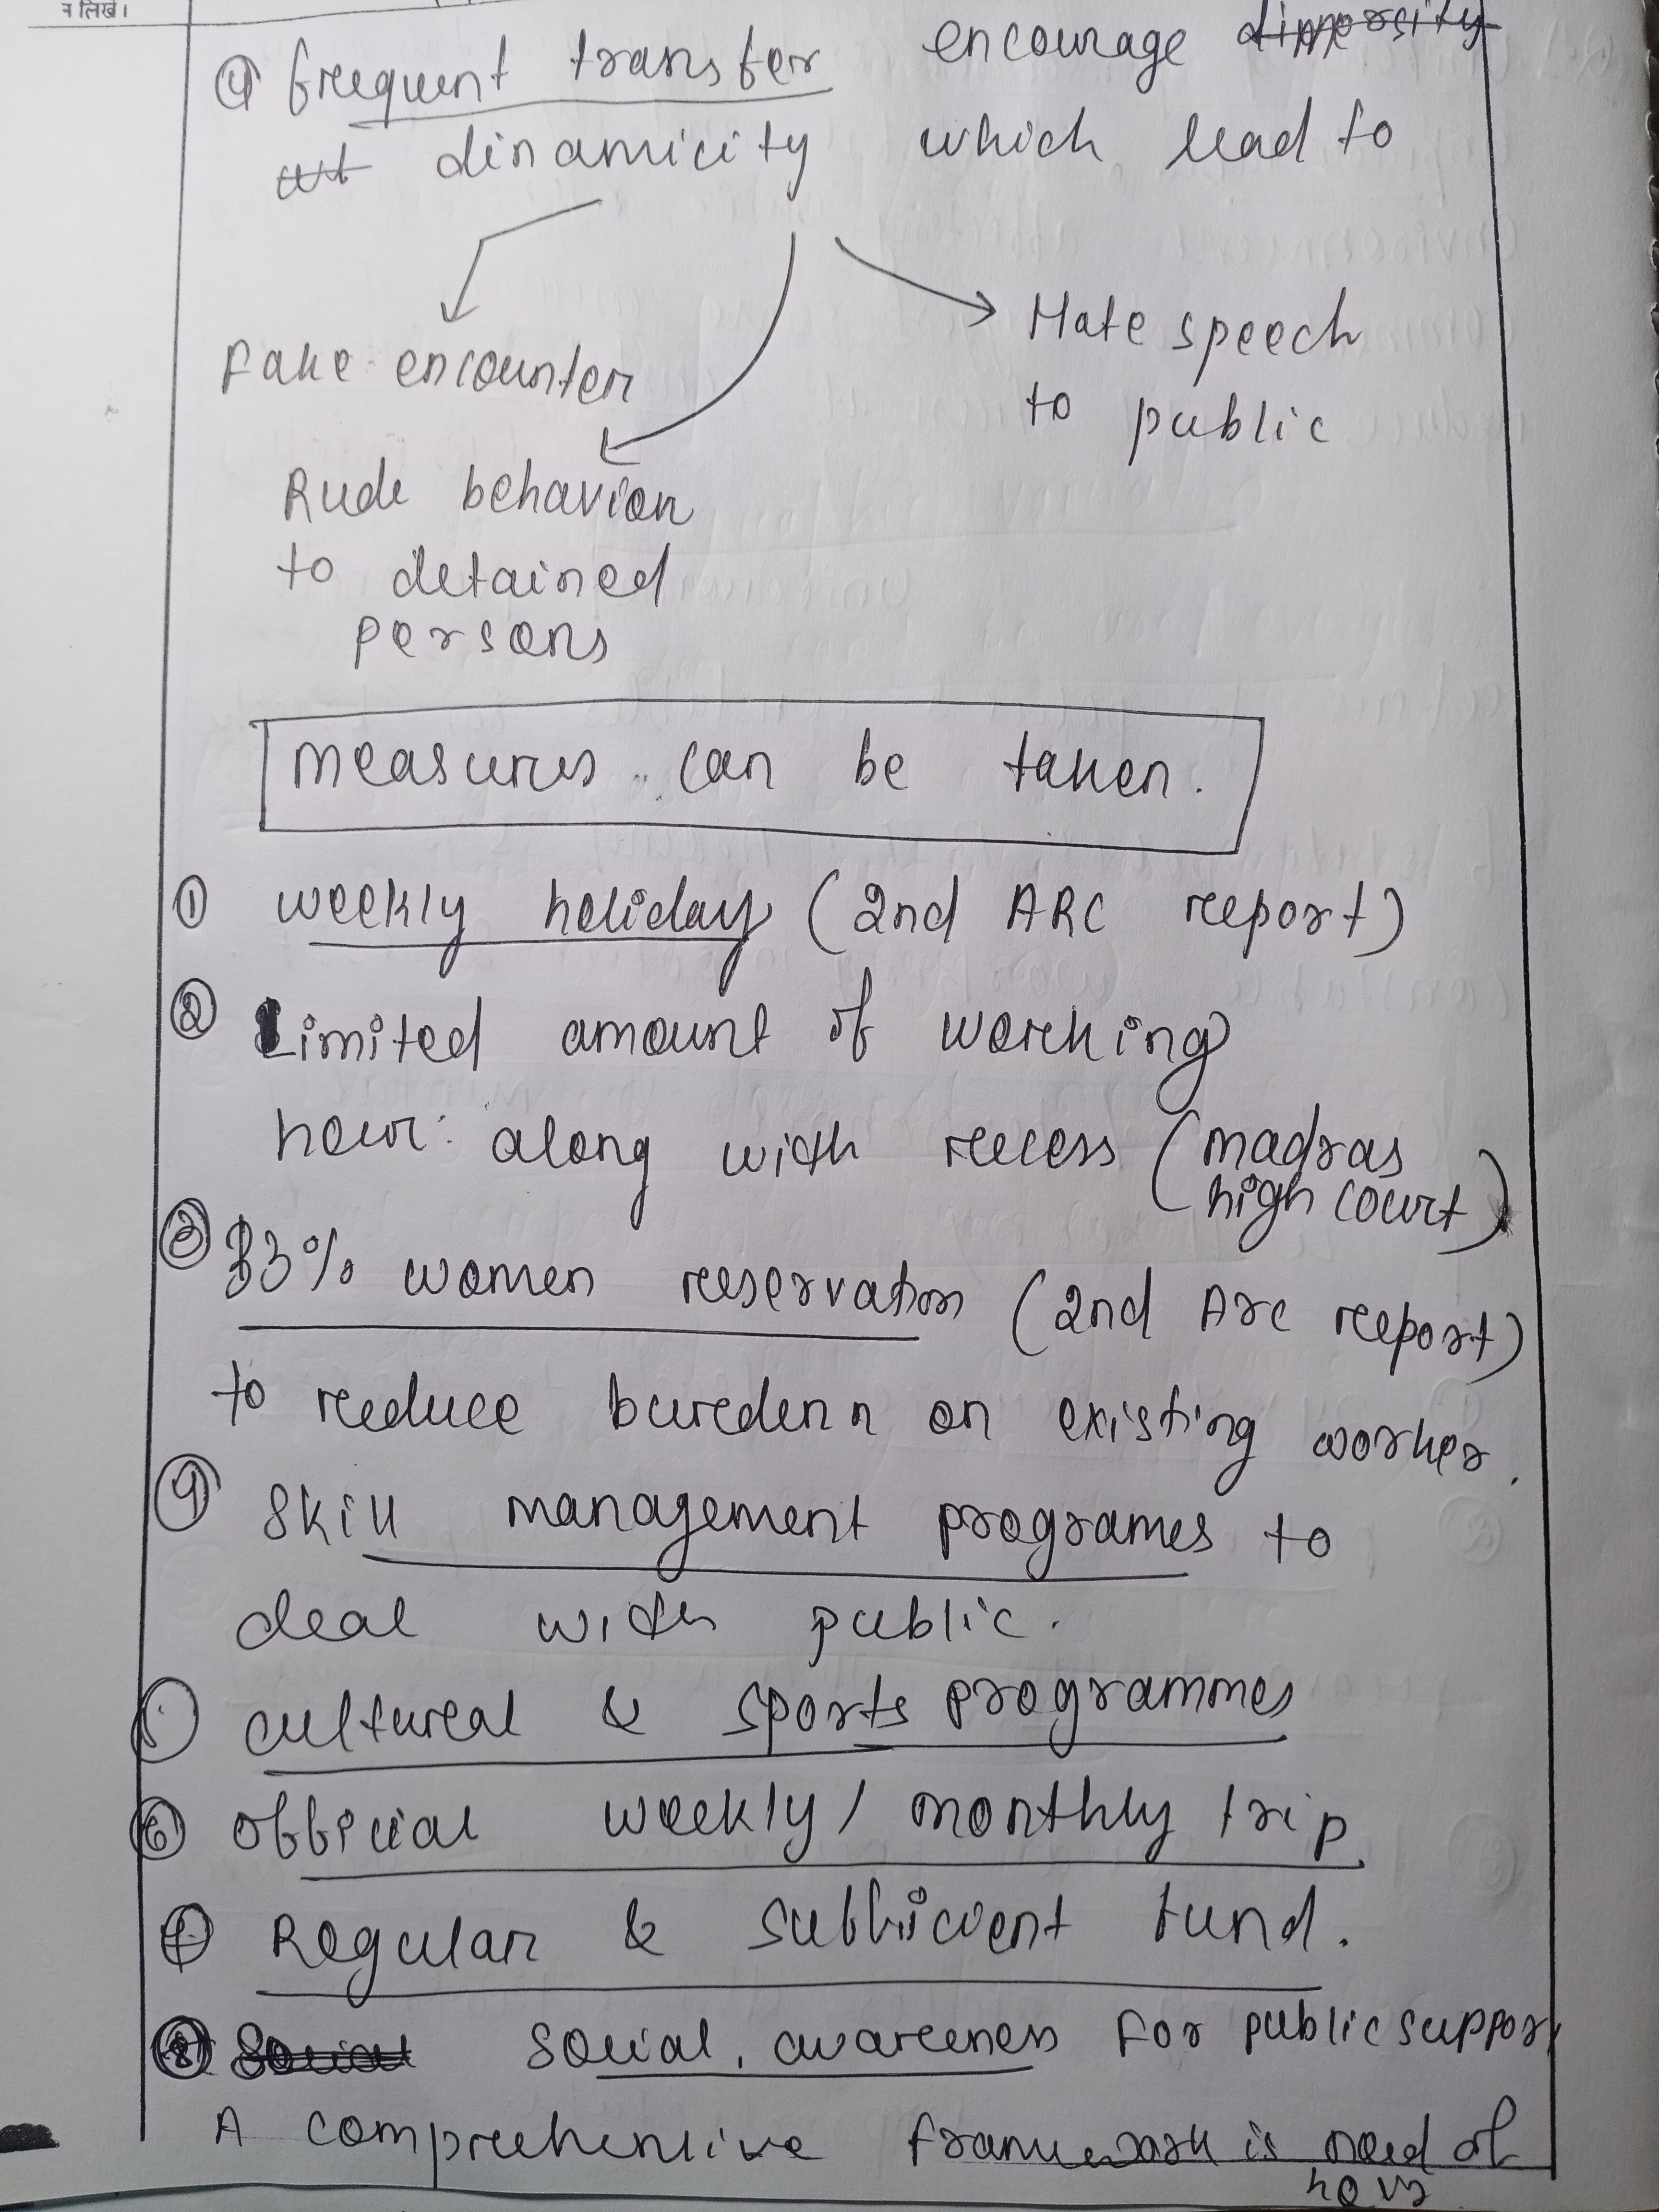 न लिखें।
④ frequent transfer encourage
dinamicity which lead to
Fake encounter
Hate speech
to public
Rude behavior
to detained
persons
measures can be taken.
① weekly holiday (2nd ARC report)
② Limited amount of working
hour along with recess (madras
high court)
③ 33% women reservation (2nd Arc report)
to reduce burdenn on existing worker.
④ Skill management programes to
deal with public.
5 cultural & sports programmes
⑥ official weekly / monthly trip
⑦ Regular & sufficient fund.
⑧ Social Social awareness for public support
A comprehensive framework is need of
hour